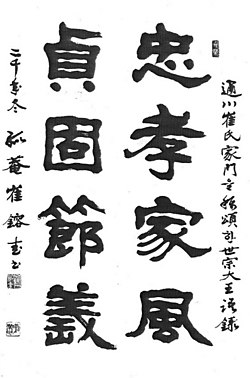 通川崔氏家門을稱頌한世宗大王語錄
忠孝家風
貞固節義
二千年冬 孤菴 崔鎔